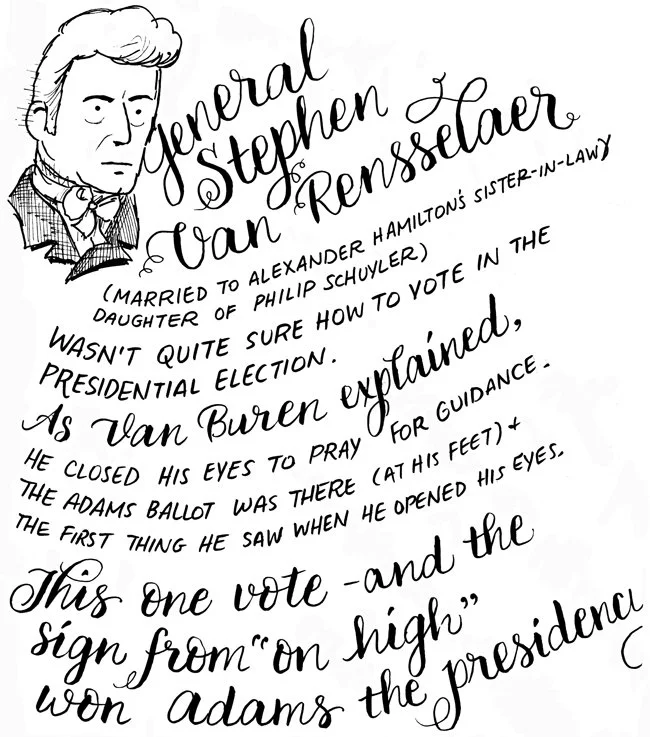 General
Stephen
Van Rensselaer
(MARRIED TO ALEXANDER HAMILTON'S SISTER-IN-LAW,
DAUGHTER OF PHILIP SCHUYLER)
WASN'T QUITE SURE HOW TO VOTE IN THE
PRESIDENTIAL ELECTION.
As Van Buren explained,
HE CLOSED HIS EYES TO PRAY FOR GUIDANCE.
THE ADAMS BALLOT WAS THERE (AT HIS FEET) +
THE FIRST THING HE SAW WHEN HE OPENED HIS EYES.
This one vote - and the
sign from "on high"
won Adams the presidenc